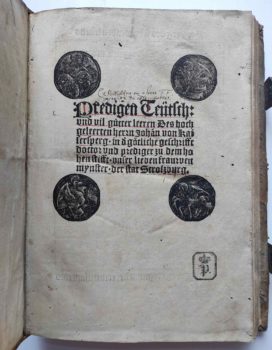 Predigen Teütsch:
und vil gůtter leeren Des hoch
geleerten herrn Johan von Kay
sersperg. in d götliche geschrifft
doctor und prediger zu dem ho
hen stifft. unser lieben frauwen
mynster. der stat Straßburg.
P